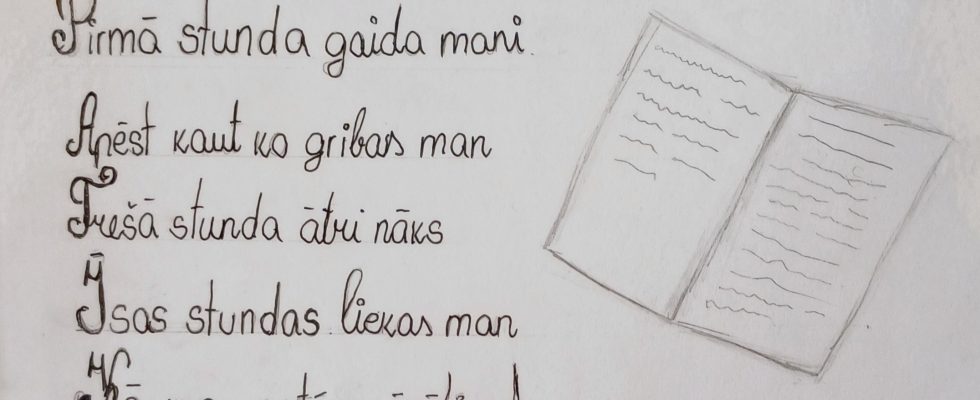 Pirmā stunda gaida mani.
Apēst kaut ko gribas man
Trešā stunda ātri nāks
Īsas stundas liekas man